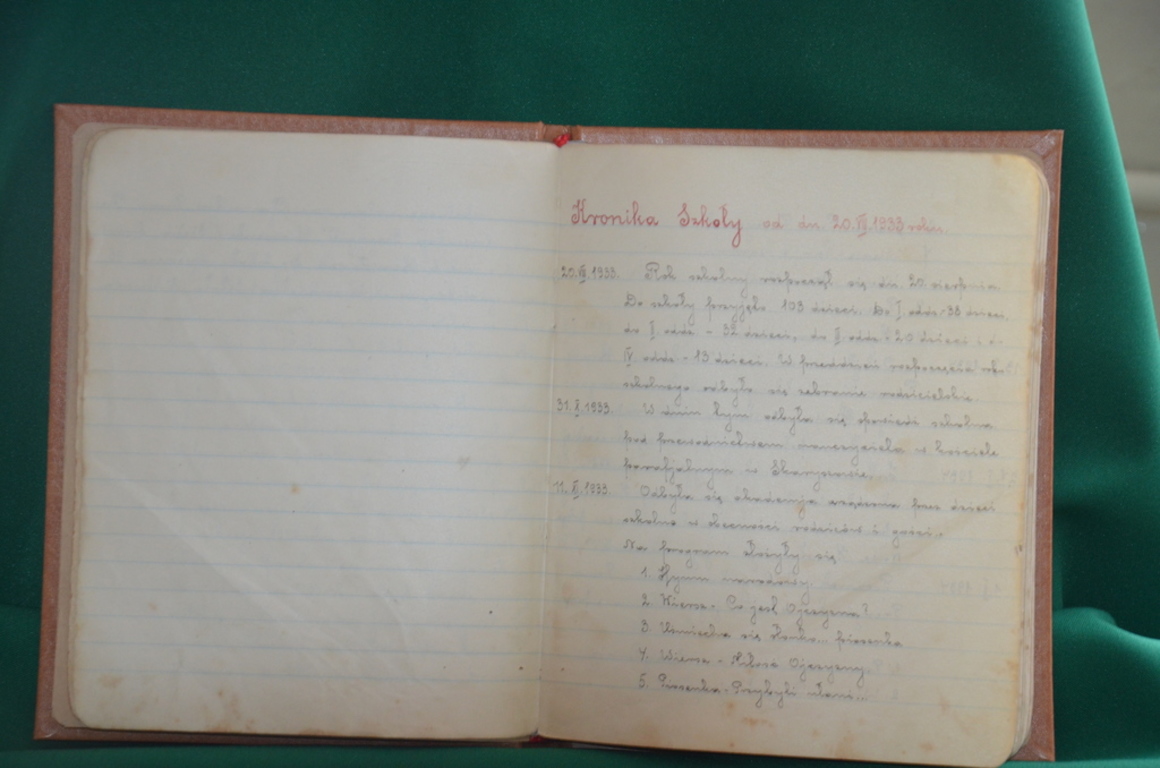 Kronika Szkoły od dn. 20.VIII.1933 roku.
20.VIII.1933. Rok szkolny rozpoczął się dn. 20 sierpnia.
Do szkoły przyjęto 103 dzieci. Do I oddz. - 38 dzieci,
do II oddz. - 32 dzieci, do III oddz. - 20 dzieci i d-
IV oddz. - 13 dzieci. W przeddzień rozpoczęcia roku
szkolnego odbyło się zebranie rodzicielskie.
31.X.1933. W dniu tym odbyła się spowiedź szkolna
pod przewodnictwem nauczyciela w kościele
parafjalnym w Skaryszewie.
11.XI.1933. Odbyła się akademja urządzona przez dzieci
szkolne w obecności rodziców i gości.
Na program złożyły się
1. Hymn narodowy.
2. Wiersz - Co jest Ojczyzna?
3. Uśmiecha się słonko... piosenka
4. Wiersz - Miłość Ojczyzny.
5. Piosenka - Przybyli ułani...